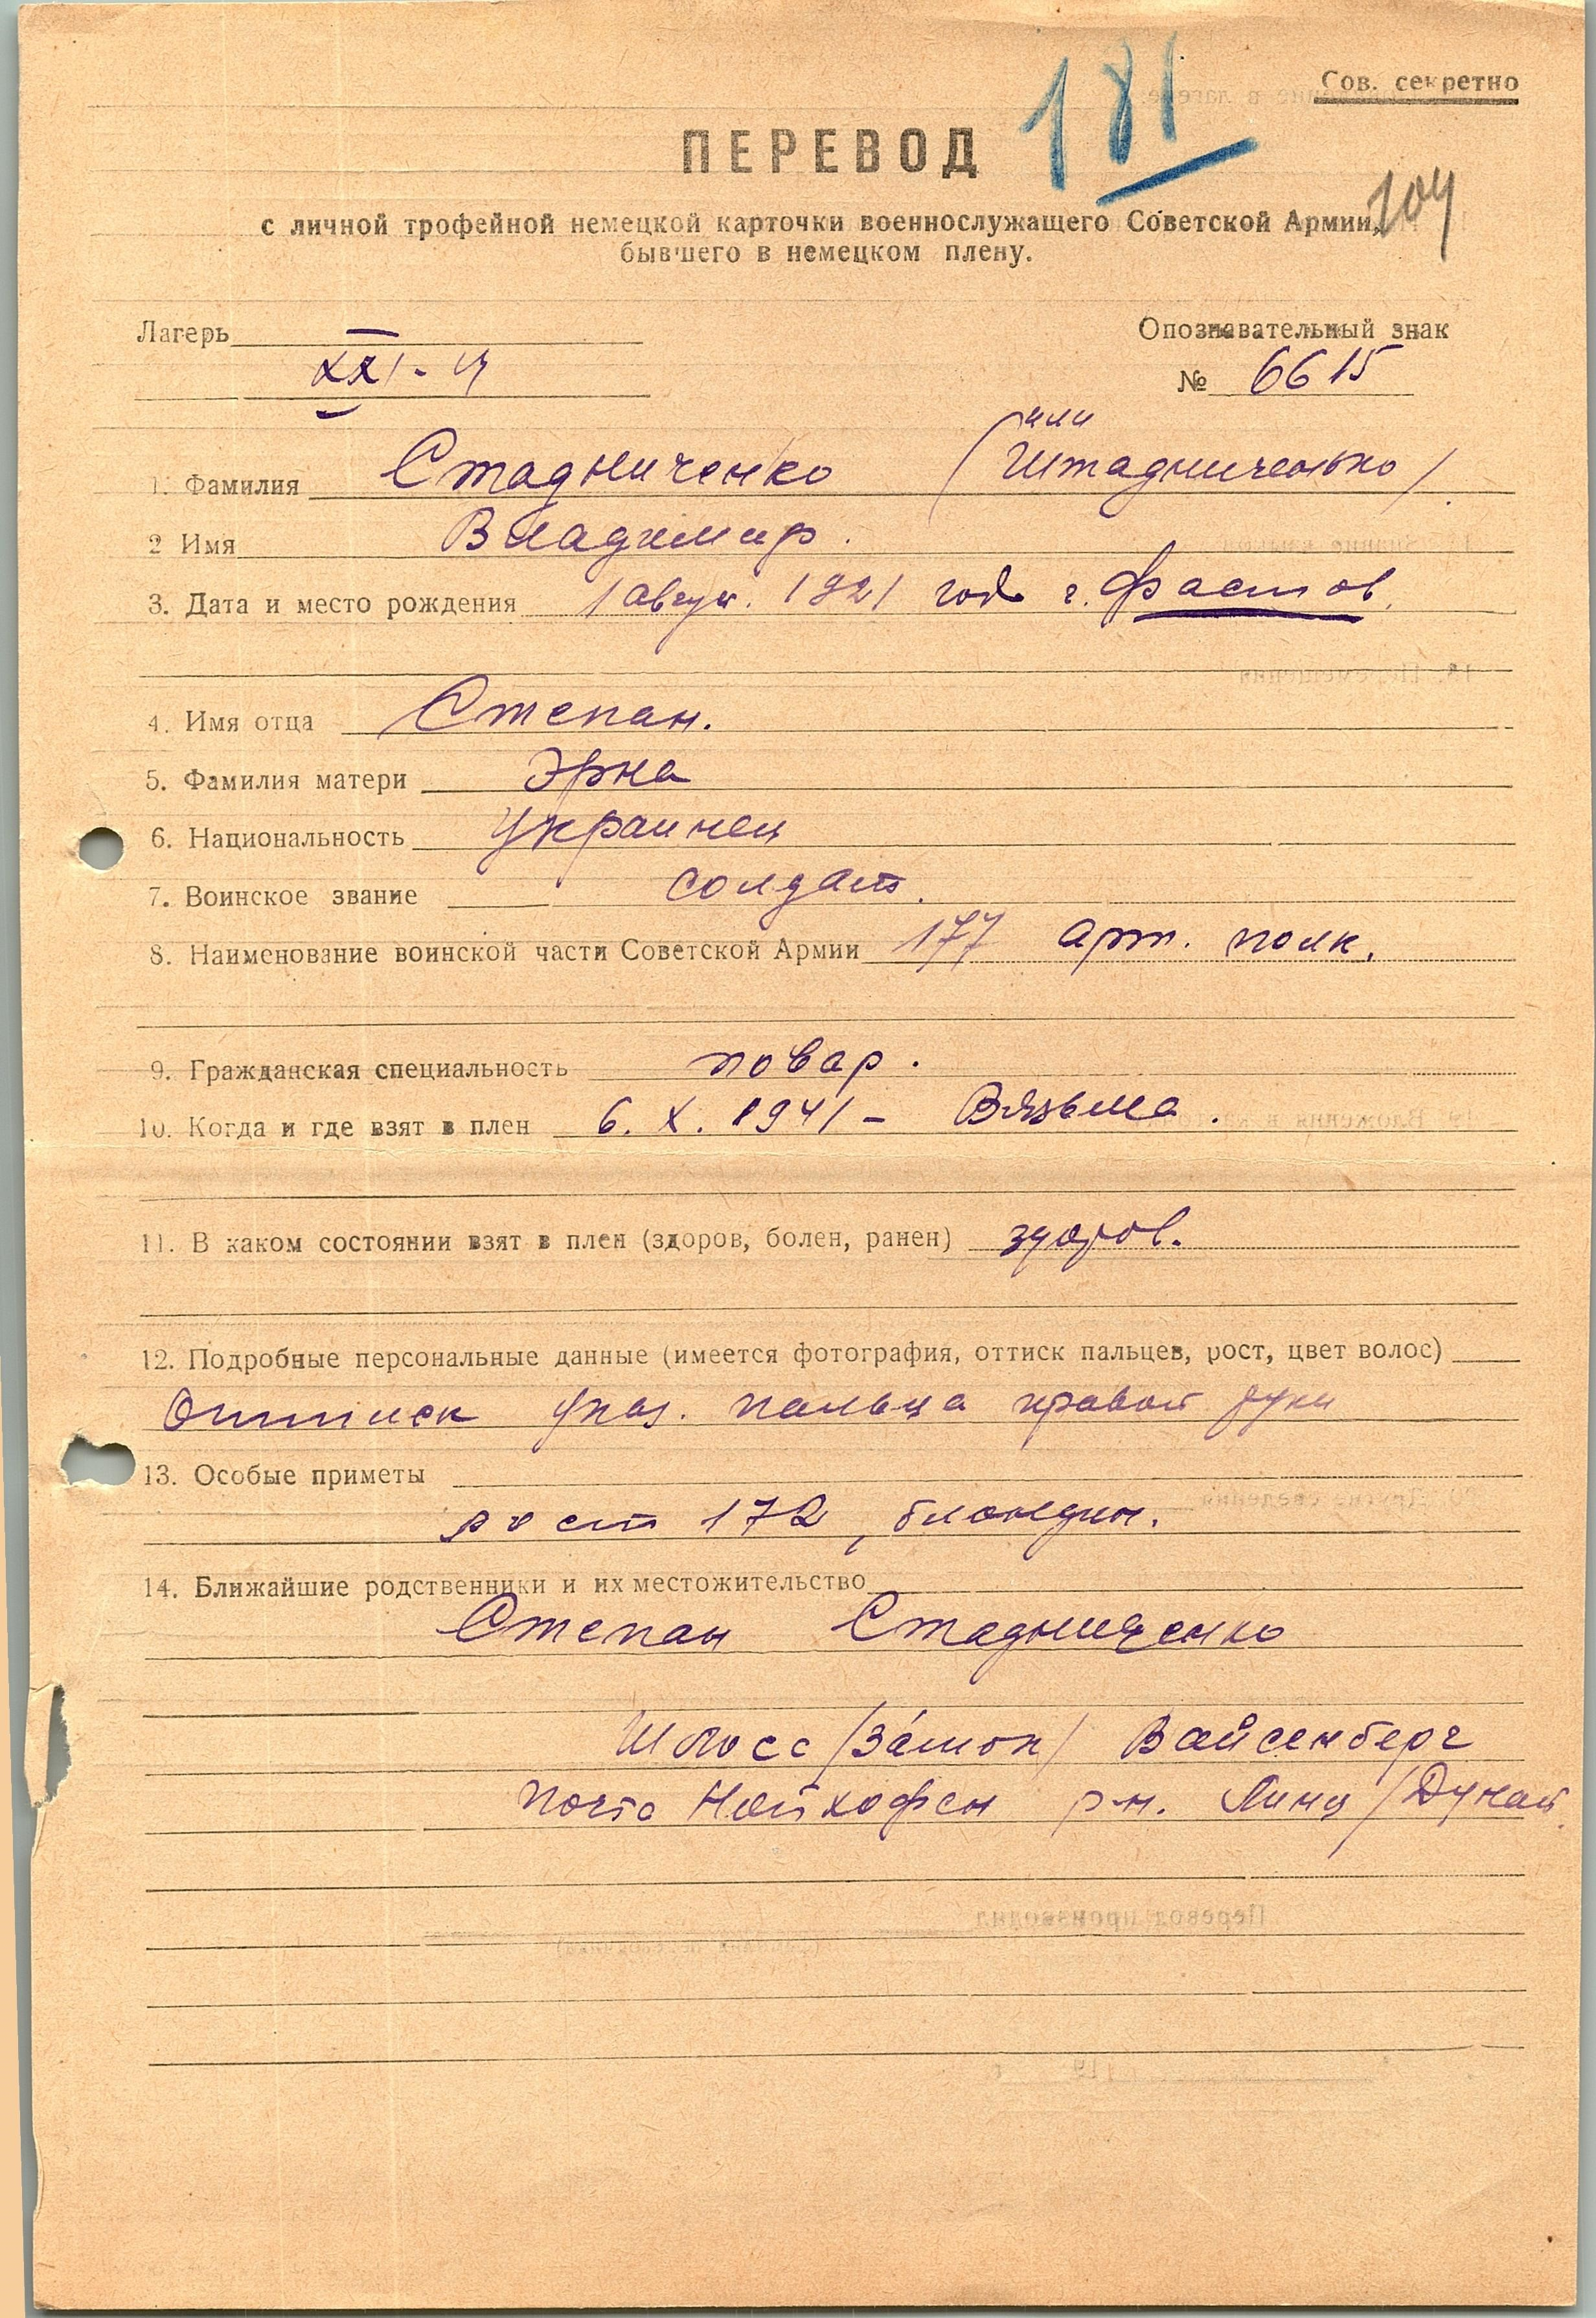 181
Сов. секретно
ПЕРЕВОД
104
с личной трофейной немецкой карточки военнослужащего Советской Армии,
бывшего в немецком плену.
Лагерь Опознавательный знак
XXI- № 6615
(или
1. Фамилия Стадниченко Штадниченько)
2 Имя Владимир.
3. Дата и место рождения 1 август. 1921 год г. Фастов.
4. Имя отца Степан.
5. Фамилия матери Эрна
6. Национальность Украинец
7. Воинское звание солдат.
8. Наименование воинской части Советской Армии 177 арт. полк.
9. Гражданская специальность повар.
10. Когда и где взят в плен 6. X. 1941 – Вязьма.
11. В каком состоянии взят в плен (здоров, болен, ранен) здоров.
12. Подробные персональные данные (имеется фотография, оттиск пальцев, рост, цвет волос)
Оттиск указ. пальца правой руки
13. Особые приметы
рост 172, блондин.
14. Ближайшие родственники и их местожительство
Степан Стадниченко
Шлосс /За́мок/ Вайсенберг
почта Нойхофен р-н. Линц /Дунай.